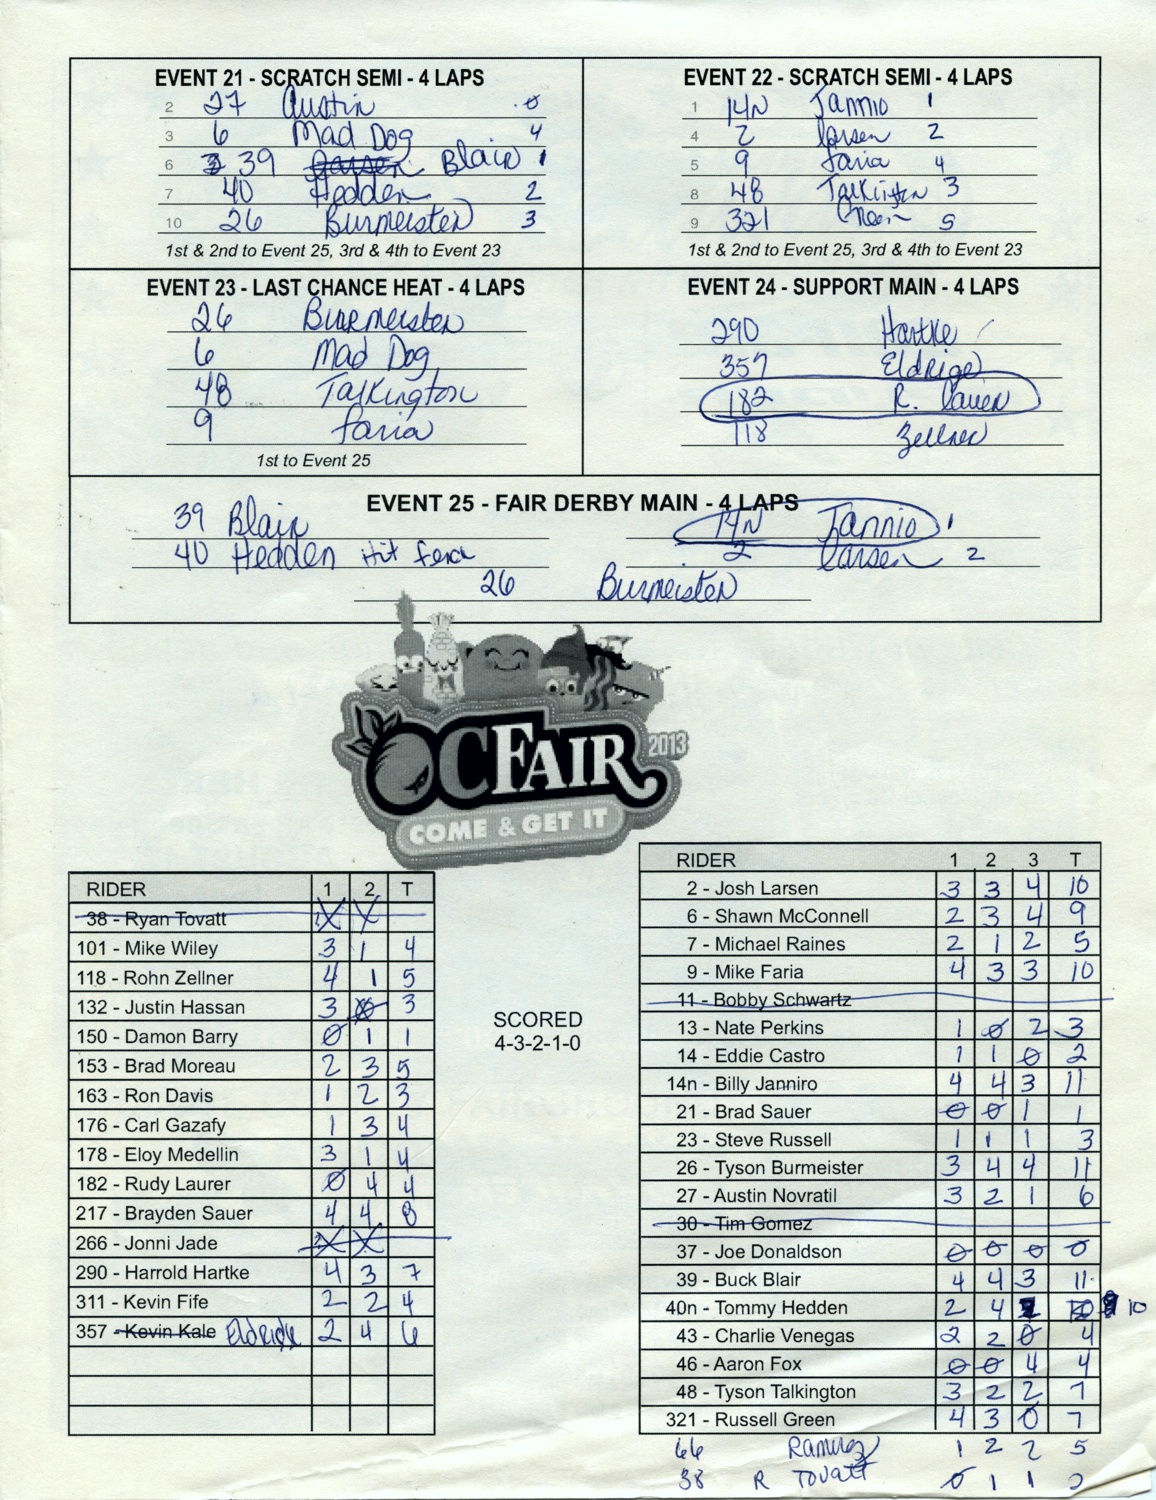 EVENT 21 - SCRATCH SEMI - 4 LAPS
2 27 Austin 0
3 6 Mad Dog 4
6 39 Larsen Blair 1
7 40 Hedden 2
10 26 Burmeister 3
1st & 2nd to Event 25, 3rd & 4th to Event 23
EVENT 22 - SCRATCH SEMI - 4 LAPS
1 14N Jannio 1
4 2 Larsen 2
5 9 Faria 4
8 48 Talkington 3
9 321 Green 5
1st & 2nd to Event 25, 3rd & 4th to Event 23
EVENT 23 - LAST CHANCE HEAT - 4 LAPS
26 Burmeister
6 Mad Dog
48 Talkington
9 Faria
1st to Event 25
EVENT 24 - SUPPORT MAIN - 4 LAPS
290 Hartke
357 Eldrige
182 R. Laurer
118 Zellner
EVENT 25 - FAIR DERBY MAIN - 4 LAPS
39 Blair
40 Hedden Hit fence
14N Jannio 1
2 Larsen 2
26 Burmeister
OC FAIR 2013
COME & GET IT
RIDER 1 2 T
38 - Ryan Tovatt X X
101 - Mike Wiley 3 1 4
118 - Rohn Zellner 4 1 5
132 - Justin Hassan 3 0 3
150 - Damon Barry 0 1 1
153 - Brad Moreau 2 3 5
163 - Ron Davis 1 2 3
176 - Carl Gazafy 1 3 4
178 - Eloy Medellin 3 1 4
182 - Rudy Laurer 0 4 4
217 - Brayden Sauer 4 4 8
266 - Jonni Jade X X
290 - Harrold Hartke 4 3 7
311 - Kevin Fife 2 2 4
357 - Kevin Kale Eldridge 2 4 6
SCORED
4-3-2-1-0
RIDER 1 2 3 T
2 - Josh Larsen 3 3 4 10
6 - Shawn McConnell 2 3 4 9
7 - Michael Raines 2 1 2 5
9 - Mike Faria 4 3 3 10
11 - Bobby Schwartz
13 - Nate Perkins 1 0 2 3
14 - Eddie Castro 1 1 0 2
14n - Billy Janniro 4 4 3 11
21 - Brad Sauer 0 0 1 1
23 - Steve Russell 1 1 1 3
26 - Tyson Burmeister 3 4 4 11
27 - Austin Novratil 3 2 1 6
30 - Tim Gomez
37 - Joe Donaldson 0 0 0 0
39 - Buck Blair 4 4 3 11
40n - Tommy Hedden 2 4 10
43 - Charlie Venegas 2 2 0 4
46 - Aaron Fox 0 0 4 4
48 - Tyson Talkington 3 2 2 7
321 - Russell Green 4 3 0 7
66 Ramirez 1 2 2 5
38 R Tovatt 0 1 1 2